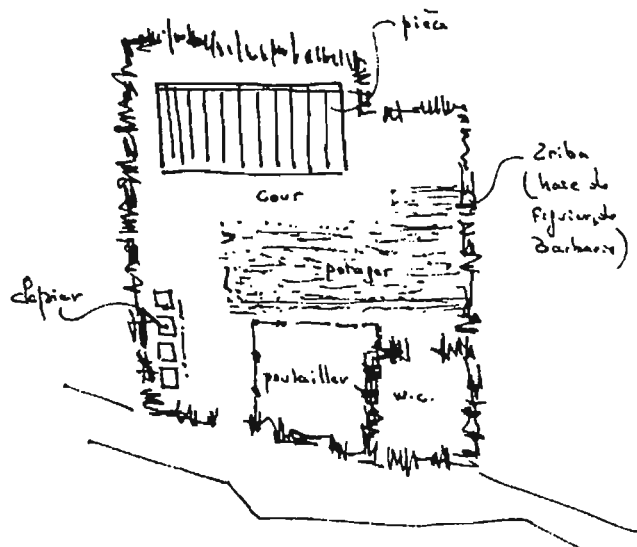 pièce
Zriba
(haie de
figuier, de
Barbarie)
cour
potager
Clapier
poulailler
w.c.